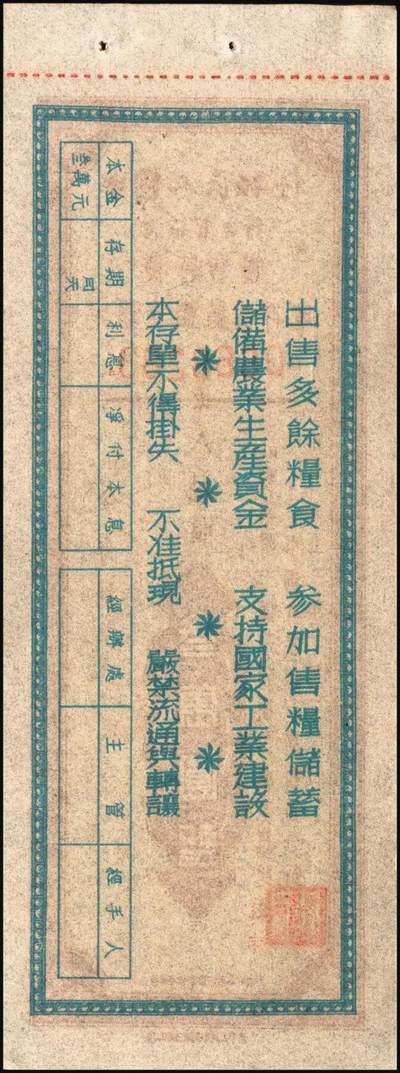 出售多餘糧食 參加售糧儲蓄
儲備農業生產資金 支持國家工業建設
本存單不得掛失 不准抵現 嚴禁流通與轉讓
本金 存期 利息 淨付本息
叁萬元 天
經辦處 主管 經手人